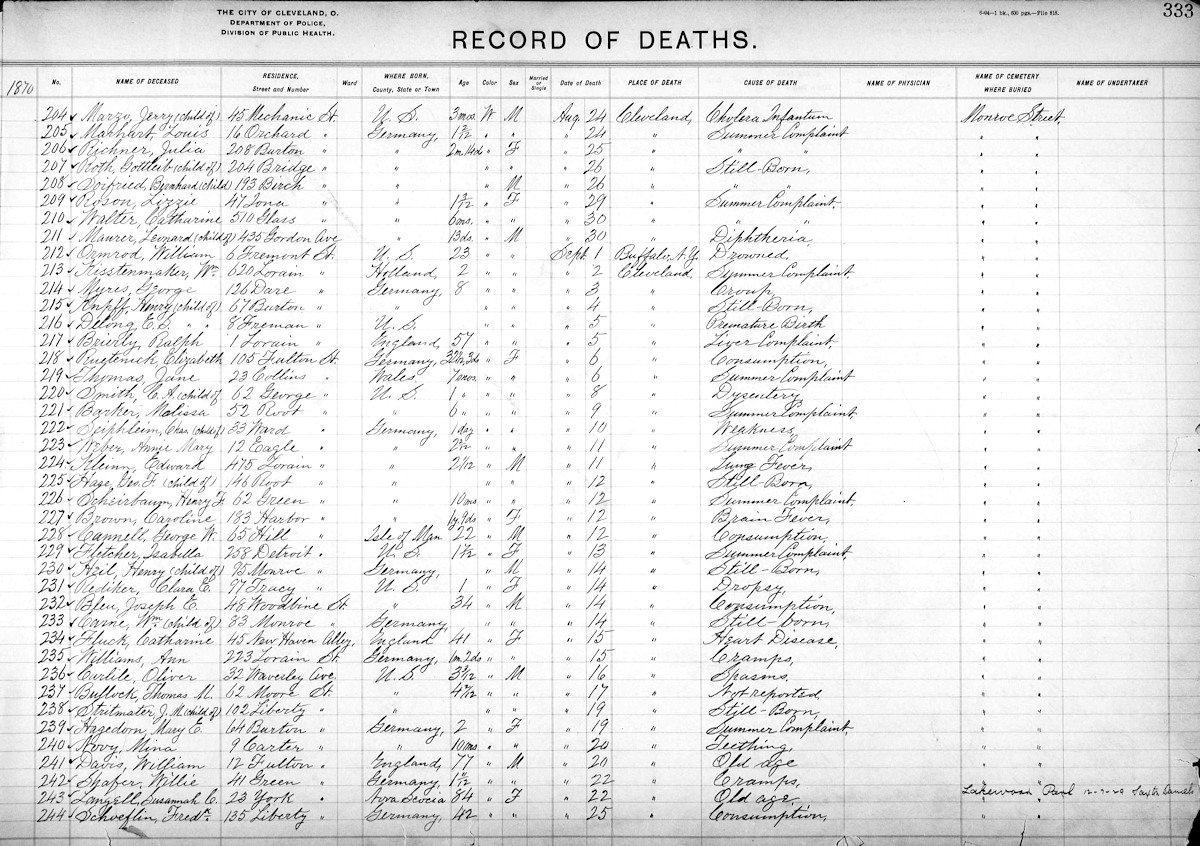 THE CITY OF CLEVELAND, O.
DEPARTMENT OF POLICE,
DIVISION OF PUBLIC HEALTH.
6-94—1 bk., 600 pgs.—File 818.
333
RECORD OF DEATHS.
1870 No. NAME OF DECEASED RESIDENCE, Street and Number Ward WHERE BORN, County, State or Town Age Color Sex Married or Single Date of Death PLACE OF DEATH CAUSE OF DEATH NAME OF PHYSICIAN NAME OF CEMETERY WHERE BURIED NAME OF UNDERTAKER
204 Marzo, Jerry (child of) 45 Mechanic St. U. S. 3 mos. W M Aug. 24 Cleveland, Cholera Infantum Monroe Street
205 Marhart, Louis 16 Orchard " Germany, " " " 24 " Summer Complaint " "
206 Richner, Julia 208 Burton " " 2m. 14ds " F " 25 " " " " "
207 Roth, Gottleib (child of) 204 Bridge " " " " " 26 " Still-Born, " "
208 Soifried, Bernhard (child 193 Birch " " " M " 26 " " " " "
209 Roson, Lizzie 47 Iona " " " F " 29 " Summer Complaint " "
210 Walter, Catharine 510 Glass " " 6 ms. " " " 30 " " " " "
211 Maurer, Leonard (child of) 435 Gordon Ave " 13 ds. " M " 30 " Diphtheria, " "
212 Ormrod, William 6 Fremont St. U. S. 23 " " Sept. 1 Buffalo, N. Y. Drowned, " "
213 Kisstenmaker, Wm. 620 Lorain " Holland, 2 " " " 2 Cleveland Summer Complaint " "
214 Myres, George 126 Dare " Germany, 8 " " " 3 " Croup, " "
215 Knpff, Henry (child of) 67 Burton " " " " " 4 " Still-Born, " "
216 Delong, E. S. " " 8 Freman " U. S. " " " 5 " Premature Birth " "
217 Brierly, Ralph 1 Lorain " England, 57 " " " 5 " Liver Complaint, " "
218 Ruetenick, Elizabeth 105 Fulton St. Germany, " F " 6 " Consumption, " "
219 Thomas, Jane 23 Collins " Wales, 7 mos. " " " 6 " Summer Complaint " "
220 Smith, C. A. (child of 62 George " U. S. 1 " " " " 8 " Dysentery " "
221 Barker, Melissa 52 Root " " 6 " " " " 9 " Summer Complaint " "
222 Seiphleim, Chas. (child of) 33 Ward " Germany, 1 day " " " 10 " Weakness, " "
223 Weber, Annie Mary 12 Eagle " " 2 " " " 11 " Summer Complaint " "
224 Kleinn, Edward 475 Lorain " " 2 1/12 " M " 11 " Lung Fever, " "
225 Hage, Geo. F. (child of) 146 Root " " " " " 12 " Still-Born, " "
226 Scheirbaum, Henry F. 62 Green " " 10 ms " " " 12 " Summer Complaint, " "
227 Brown, Caroline 183 Harbor " " 1y. 9ds " F " 12 " Brain Fever, " "
228 Cannell, George W. 65 Hill " Isle of Man 22 " M " 12 " Consumption, " "
229 Fletcher, Isabella 258 Detroit " U. S. 1 " F " 13 " Summer Complaint " "
230 Heil, Henry (child of) 95 Monroe " Germany, " M " 14 " Still-Born, " "
231 Rediker, Clara E. 97 Tracy " U. S. 1 " F " 14 " Dropsy, " "
232 Bleu, Joseph E. 48 Woodbine St. " 34 " M " 14 " Consumption, " "
233 Carne, Wm. (child of) 83 Monroe " Germany, " " " 14 " Still-born, " "
234 Fluck, Catharine 45 New Haven Alley, England 41 " F " 15 " Heart Disease, " "
235 Williams, Ann 223 Lorain St. Germany, 1m. 2ds " " " 15 " Cramps, " "
236 Carlile, Oliver 32 Waverley Ave. U. S. 3 " M " 16 " Spasms, " "
237 Bullock, Thomas M. 62 Moore St. " 4 " " " 17 " Not reported " "
238 Stritmater J. M. (child of) 102 Liberty " " " " " 19 " Still-Born, " "
239 Hagedorn, Mary E. 64 Burton " Germany, 2 " F " 19 " Summer Complaint, " "
240 Novy, Mina 9 Carter " " 10 ms " " " 20 " Teething, " "
241 Davis, William 12 Fulton " England, 77 " M " 20 " Old age " "
242 Shafer, Willie 41 Green " Germany, 1 " " " 22 " Cramps, " "
243 Langell, Susannah C. 23 York " Nova Scocia 84 " F " 22 " Old age. Lakewood Park
244 Schoeflin, Fredk. 135 Liberty " Germany, 42 " " " 25 " Consumption, " "